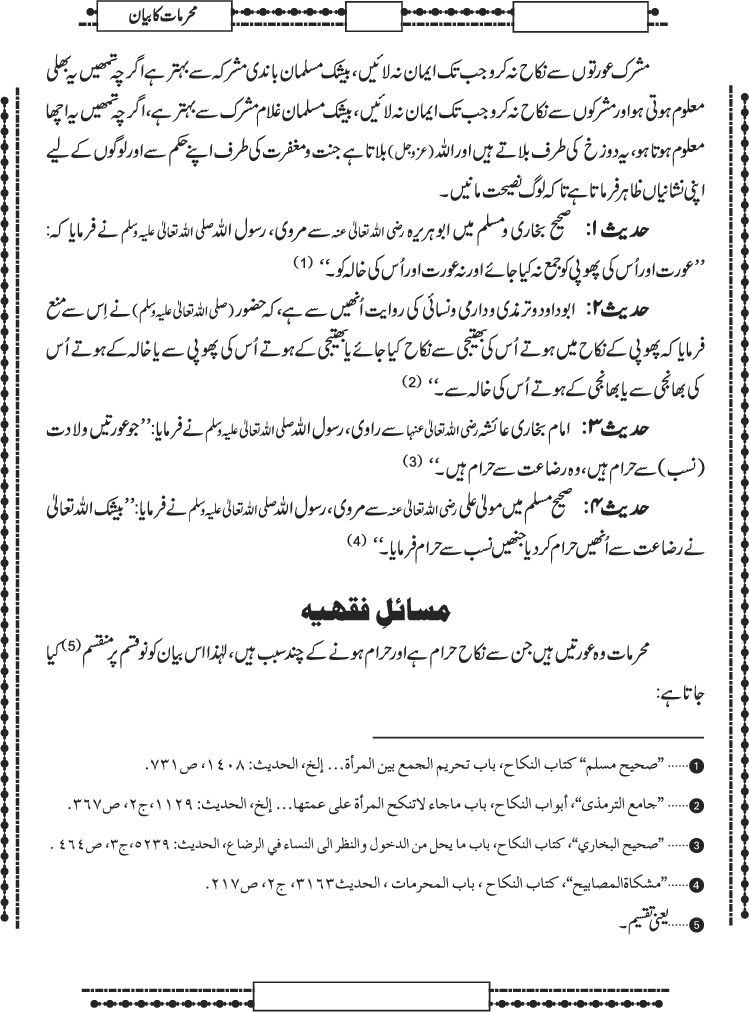 محرمات کا بیان
مشرک عورتوں سے نکاح نہ کرو جب تک ایمان نہ لائیں، بیشک مسلمان باندی مشرکہ سے بہتر ہے اگرچہ تمھیں یہ بھلی
معلوم ہوتی ہو اور مشرکوں سے نکاح نہ کرو جب تک ایمان نہ لائیں، بیشک مسلمان غلام مشرک سے بہتر ہے، اگرچہ تمھیں یہ اچھا
معلوم ہوتا ہو، یہ دوزخ کی طرف بلاتے ہیں اور اللہ (عزوجل) بلاتا ہے جنت و مغفرت کی طرف اپنے حکم سے اور لوگوں کے لیے
اپنی نشانیاں ظاہر فرماتا ہے تاکہ لوگ نصیحت مانیں۔
حدیث ۱: صحیح بخاری و مسلم میں ابوہریرہ رضی اللہ تعالیٰ عنہ سے مروی، رسول اللہ صلی اللہ تعالیٰ علیہ وسلم نے فرمایا کہ:
’’عورت اور اُس کی پھوپی کو جمع نہ کیا جائے اور نہ عورت اور اُس کی خالہ کو۔‘‘ (1)
حدیث ۲: ابوداود و ترمذی و دارمی و نسائی کی روایت اُنھیں سے ہے، کہ حضور (صلی اللہ تعالیٰ علیہ وسلم) نے اِس سے منع
فرمایا کہ پھوپی کے نکاح میں ہوتے اُس کی بھتیجی سے نکاح کیا جائے یا بھتیجی کے ہوتے اُس کی پھوپی سے یا خالہ کے ہوتے اُس
کی بھانجی سے یا بھانجی کے ہوتے اُس کی خالہ سے۔‘‘ (2)
حدیث ۳: امام بخاری عائشہ رضی اللہ تعالیٰ عنہا سے راوی، رسول اللہ صلی اللہ تعالیٰ علیہ وسلم نے فرمایا: ’’جو عورتیں ولادت
(نسب) سے حرام ہیں، وہ رضاعت سے حرام ہیں۔‘‘ (3)
حدیث ۴: صحیح مسلم میں مولیٰ علی رضی اللہ تعالیٰ عنہ سے مروی، رسول اللہ صلی اللہ تعالیٰ علیہ وسلم نے فرمایا: ’’بیشک اللہ تعالیٰ
نے رضاعت سے اُنھیں حرام کر دیا جنھیں نسب سے حرام فرمایا۔‘‘ (4)
مسائلِ فقھیہ
محرمات وہ عورتیں ہیں جن سے نکاح حرام ہے اور حرام ہونے کے چند سبب ہیں، لہٰذا اس بیان کو نو قسم پر منقسم (5) کیا
جاتا ہے:
1 ...... ”صحیح مسلم“ کتاب النکاح، باب تحریم الجمع بین المرأۃ... إلخ، الحدیث: ١٤٠٨، ص٧٣١.
2 ...... ”جامع الترمذی“، أبواب النکاح، باب ماجاء لاتنکح المرأۃ علی عمتھا... إلخ، الحدیث: ١١٢٩، ج٢، ص٣٦٧.
3 ...... ”صحیح البخاري“، کتاب النکاح، باب ما یحل من الدخول والنظر الی النساء في الرضاع، الحدیث: ٥٢٣٩، ج٣، ص٤٦٤ .
4 ...... ”مشکاۃ المصابیح“، کتاب النکاح ، باب المحرمات ، الحدیث٣١٦٣، ج٢، ص٢١٧.
5 ...... یعنی تقسیم۔